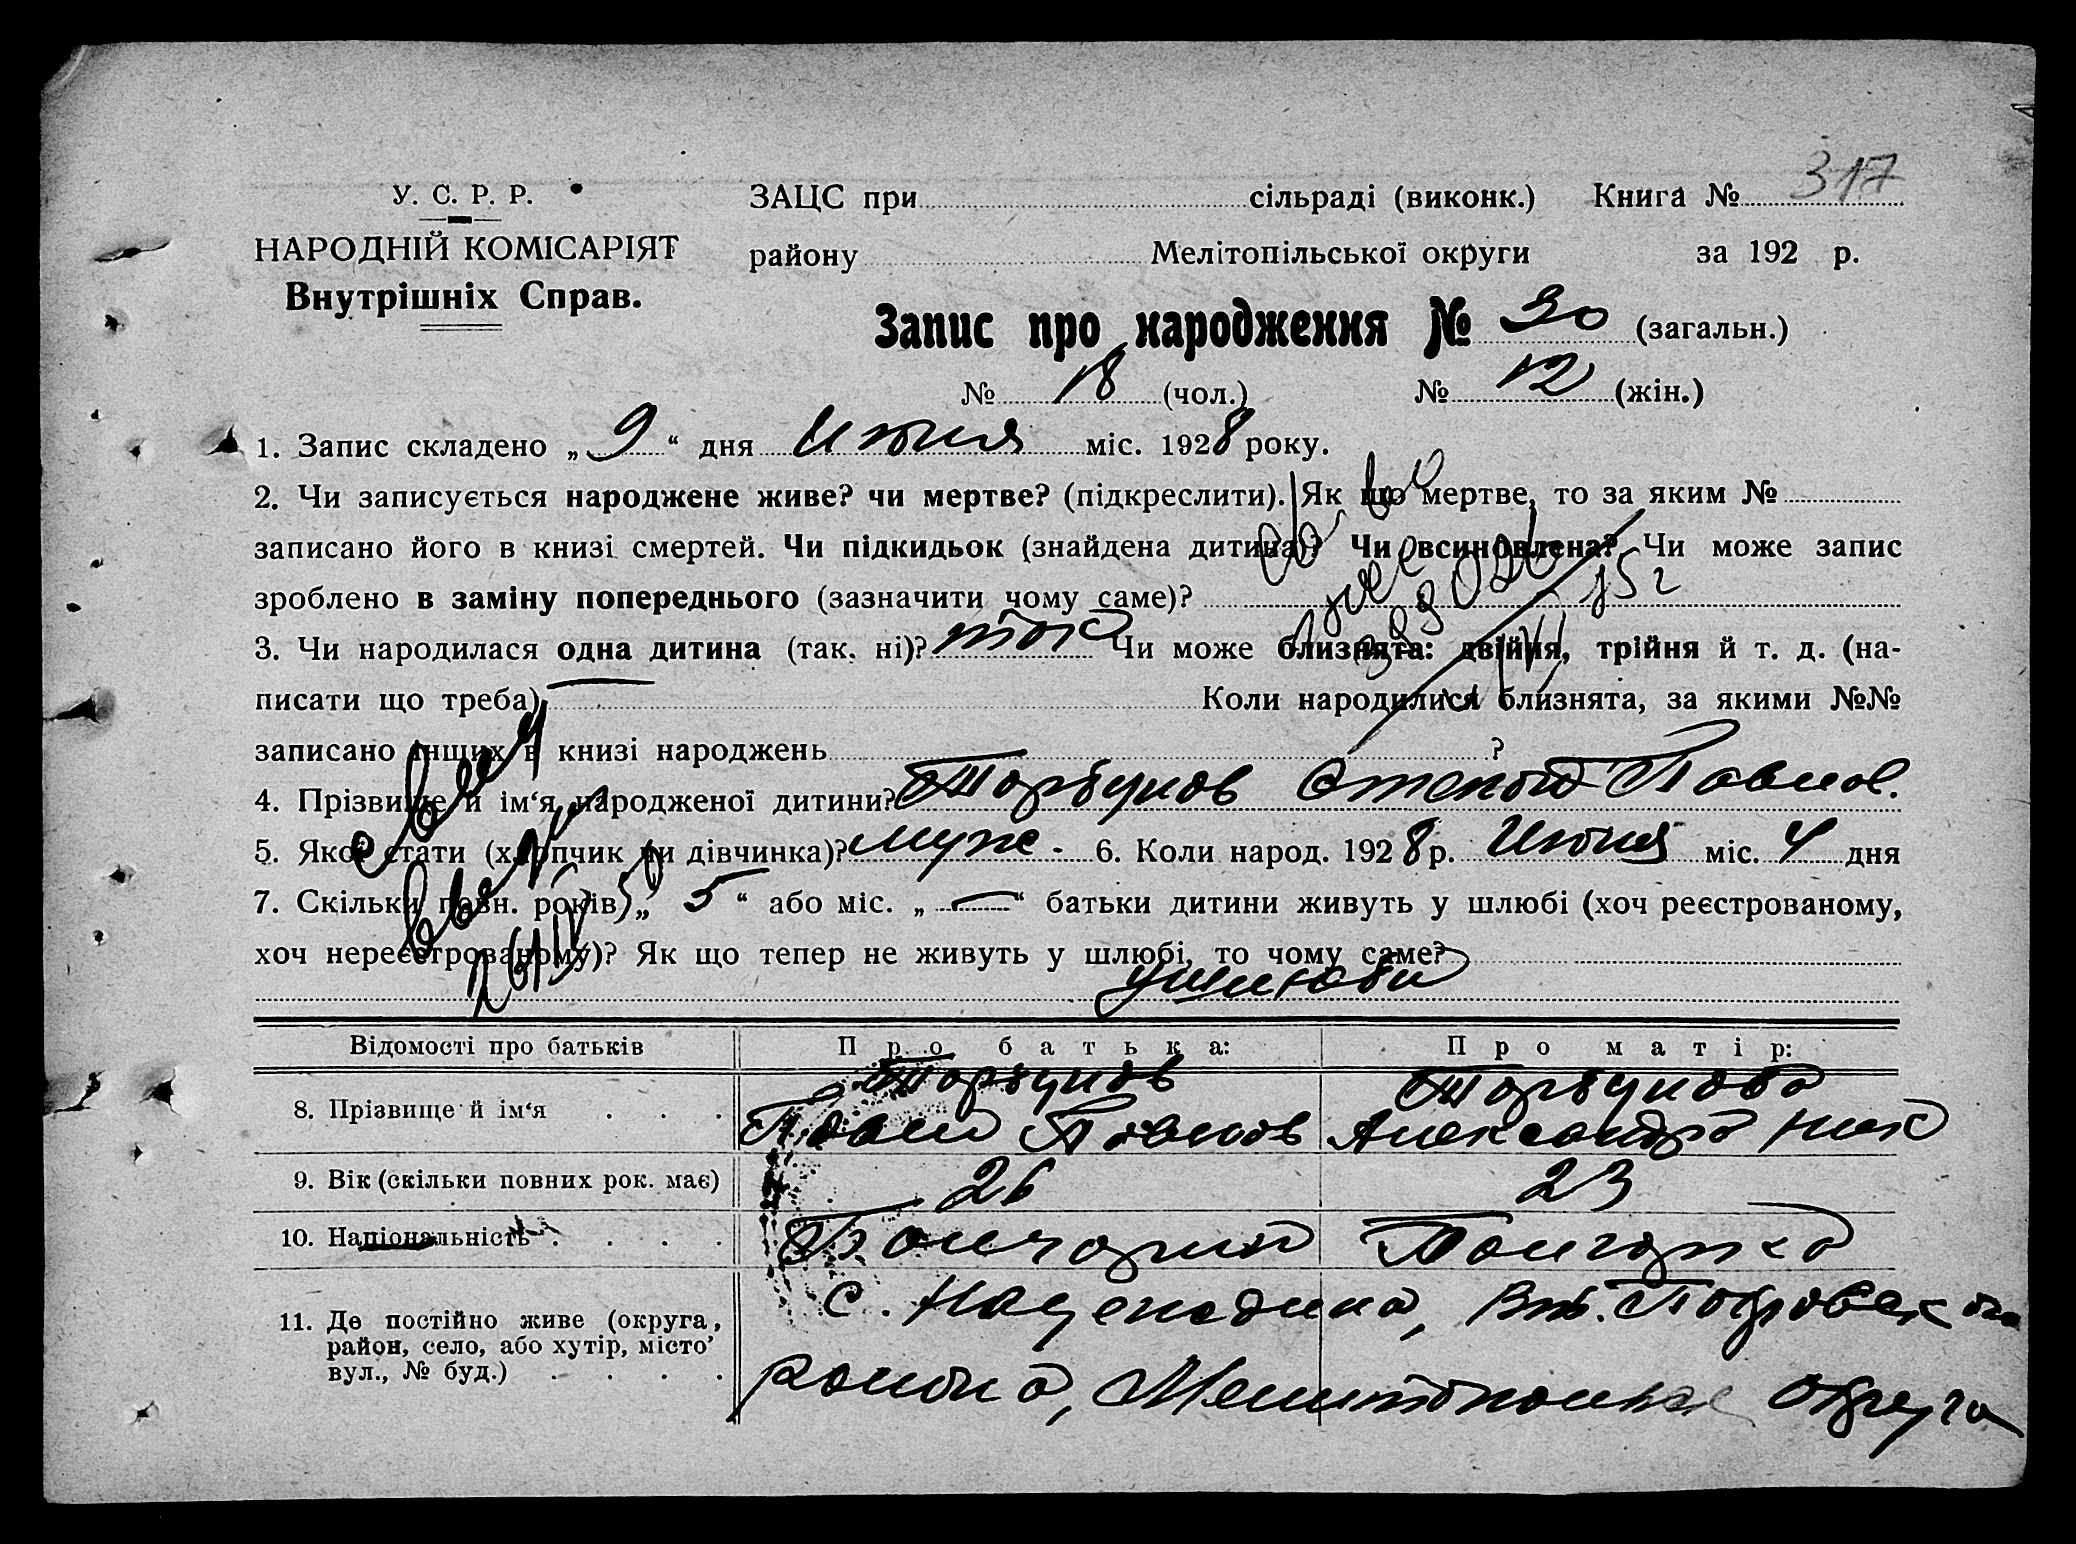 317
У. С. Р. Р.
НАРОДНІЙ КОМІСАРІЯТ
Внутрішніх Справ.
ЗАЦС при сільраді (виконк.) Книга №
району Мелітопільської округи за 192 р.
Запис про народження № 30 (загальн.)
№ 18 (чол.) № 12 (жін.)
1. Запис складено „ 9 “ дня Июня міс. 1928 року.
2. Чи записується народжене живе? чи мертве? (підкреслити). Як що мертве, то за яким №
записано його в книзі смертей. Чи підкидьок (знайдена дитина)? Чи всиновлена? Чи може запис
зроблено в заміну попереднього (зазначити чому саме)?
3. Чи народилася одна дитина (так, ні)? так Чи може близнята: двійня, трійня й т. д. (на-
писати що треба) Коли народилися близнята, за якими №№
записано інших в книзі народжень ?
4. Прізвище й ім‘я народженої дитини? Торбунов Степан Павлов.
5. Якої стати (хлопчик чи дівчинка)? муж. 6. Коли народ. 1928 р. Июня міс. 4 дня
7. Скільки повн. років „ 5 “ або міс. „ — “ батьки дитини живуть у шлюбі (хоч реєстрованому,
хоч нереєстрованому)? Як що тепер не живуть у шлюбі, то чому саме?
у шлюби
Відомості про батьків Про батька: Про матір:
8. Прізвище й ім‘я . . . Торбунов Торбунова
Павел Павлов Александра
9. Вік (скільки повних рок. має) 26 23
10. Національність . . . . Болгарин Болгарка
11. Де постійно живе (округа,
район, село, або хутір, місто
вул., № буд.) . . . .
с. Покровского
района, Мелитопольск округа